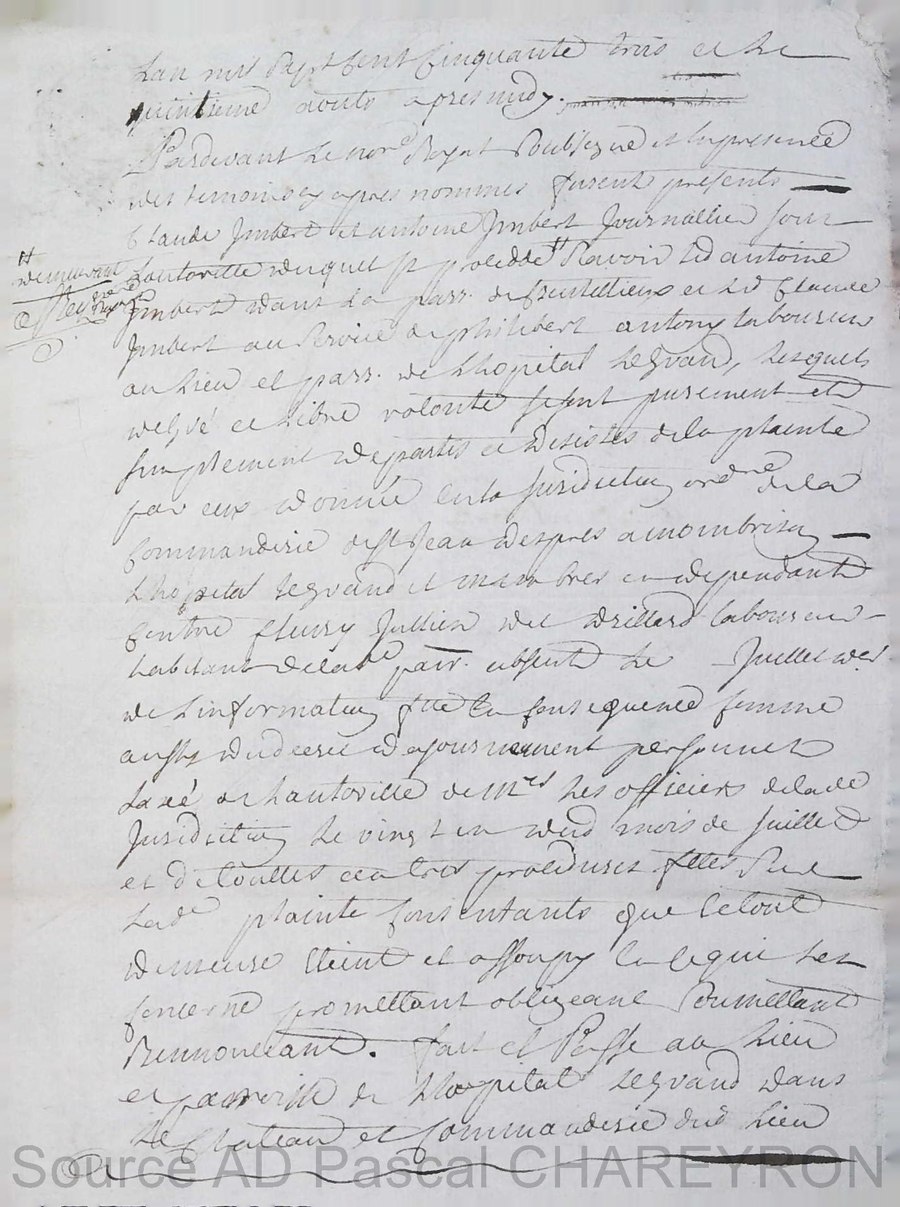 Lan mil Sept Cent Cinquante trois et Le
quinzieme aoust apres midy.
Pardevant Le nore Royal Soubsigné et En presence
des temoins cy apres nommés furent presents
Claude Imbert et antoine Imbert Journallier sous
Lautorité duquel il procedde Scavoir Led antoine
demeurant
Imbert dans La parr. de et Led Claude
Imbert au Service de philibert antony laboureur
au Lieu et parr. de Lhopital Legrand, Lesquels
de gré et Libre volonté se sont purement et
simplement departis et desistes de la plainte
par eux donnée en la Juridiction ordre de la
Commanderie de St Jean des pres a mombrison
Lhopital Legrand et membres en dependants
Contre fleury Jullien dit laboureur
habitant de lade parr. absent Le Juillet der
de Linformation fte En Consequence Comme
aussy du decret dajournement personnel
Laxé de Lautorité de Mrs Les officiers de lade
Juridiction Le vingt un dud mois de Juillet
et de touttes autres procedures fttes Sur
Lade plainte Consentants que le tout
demeure Eteint et assoupy En ce qui Les
Concerne promettant obligeant Soumettant
Rennoncant. fait et Passé au Lieu
et parroisse de Lhopital Legrand dans
Le Chateau et Commanderie dud Lieu
Source AD Pascal CHAREYRON